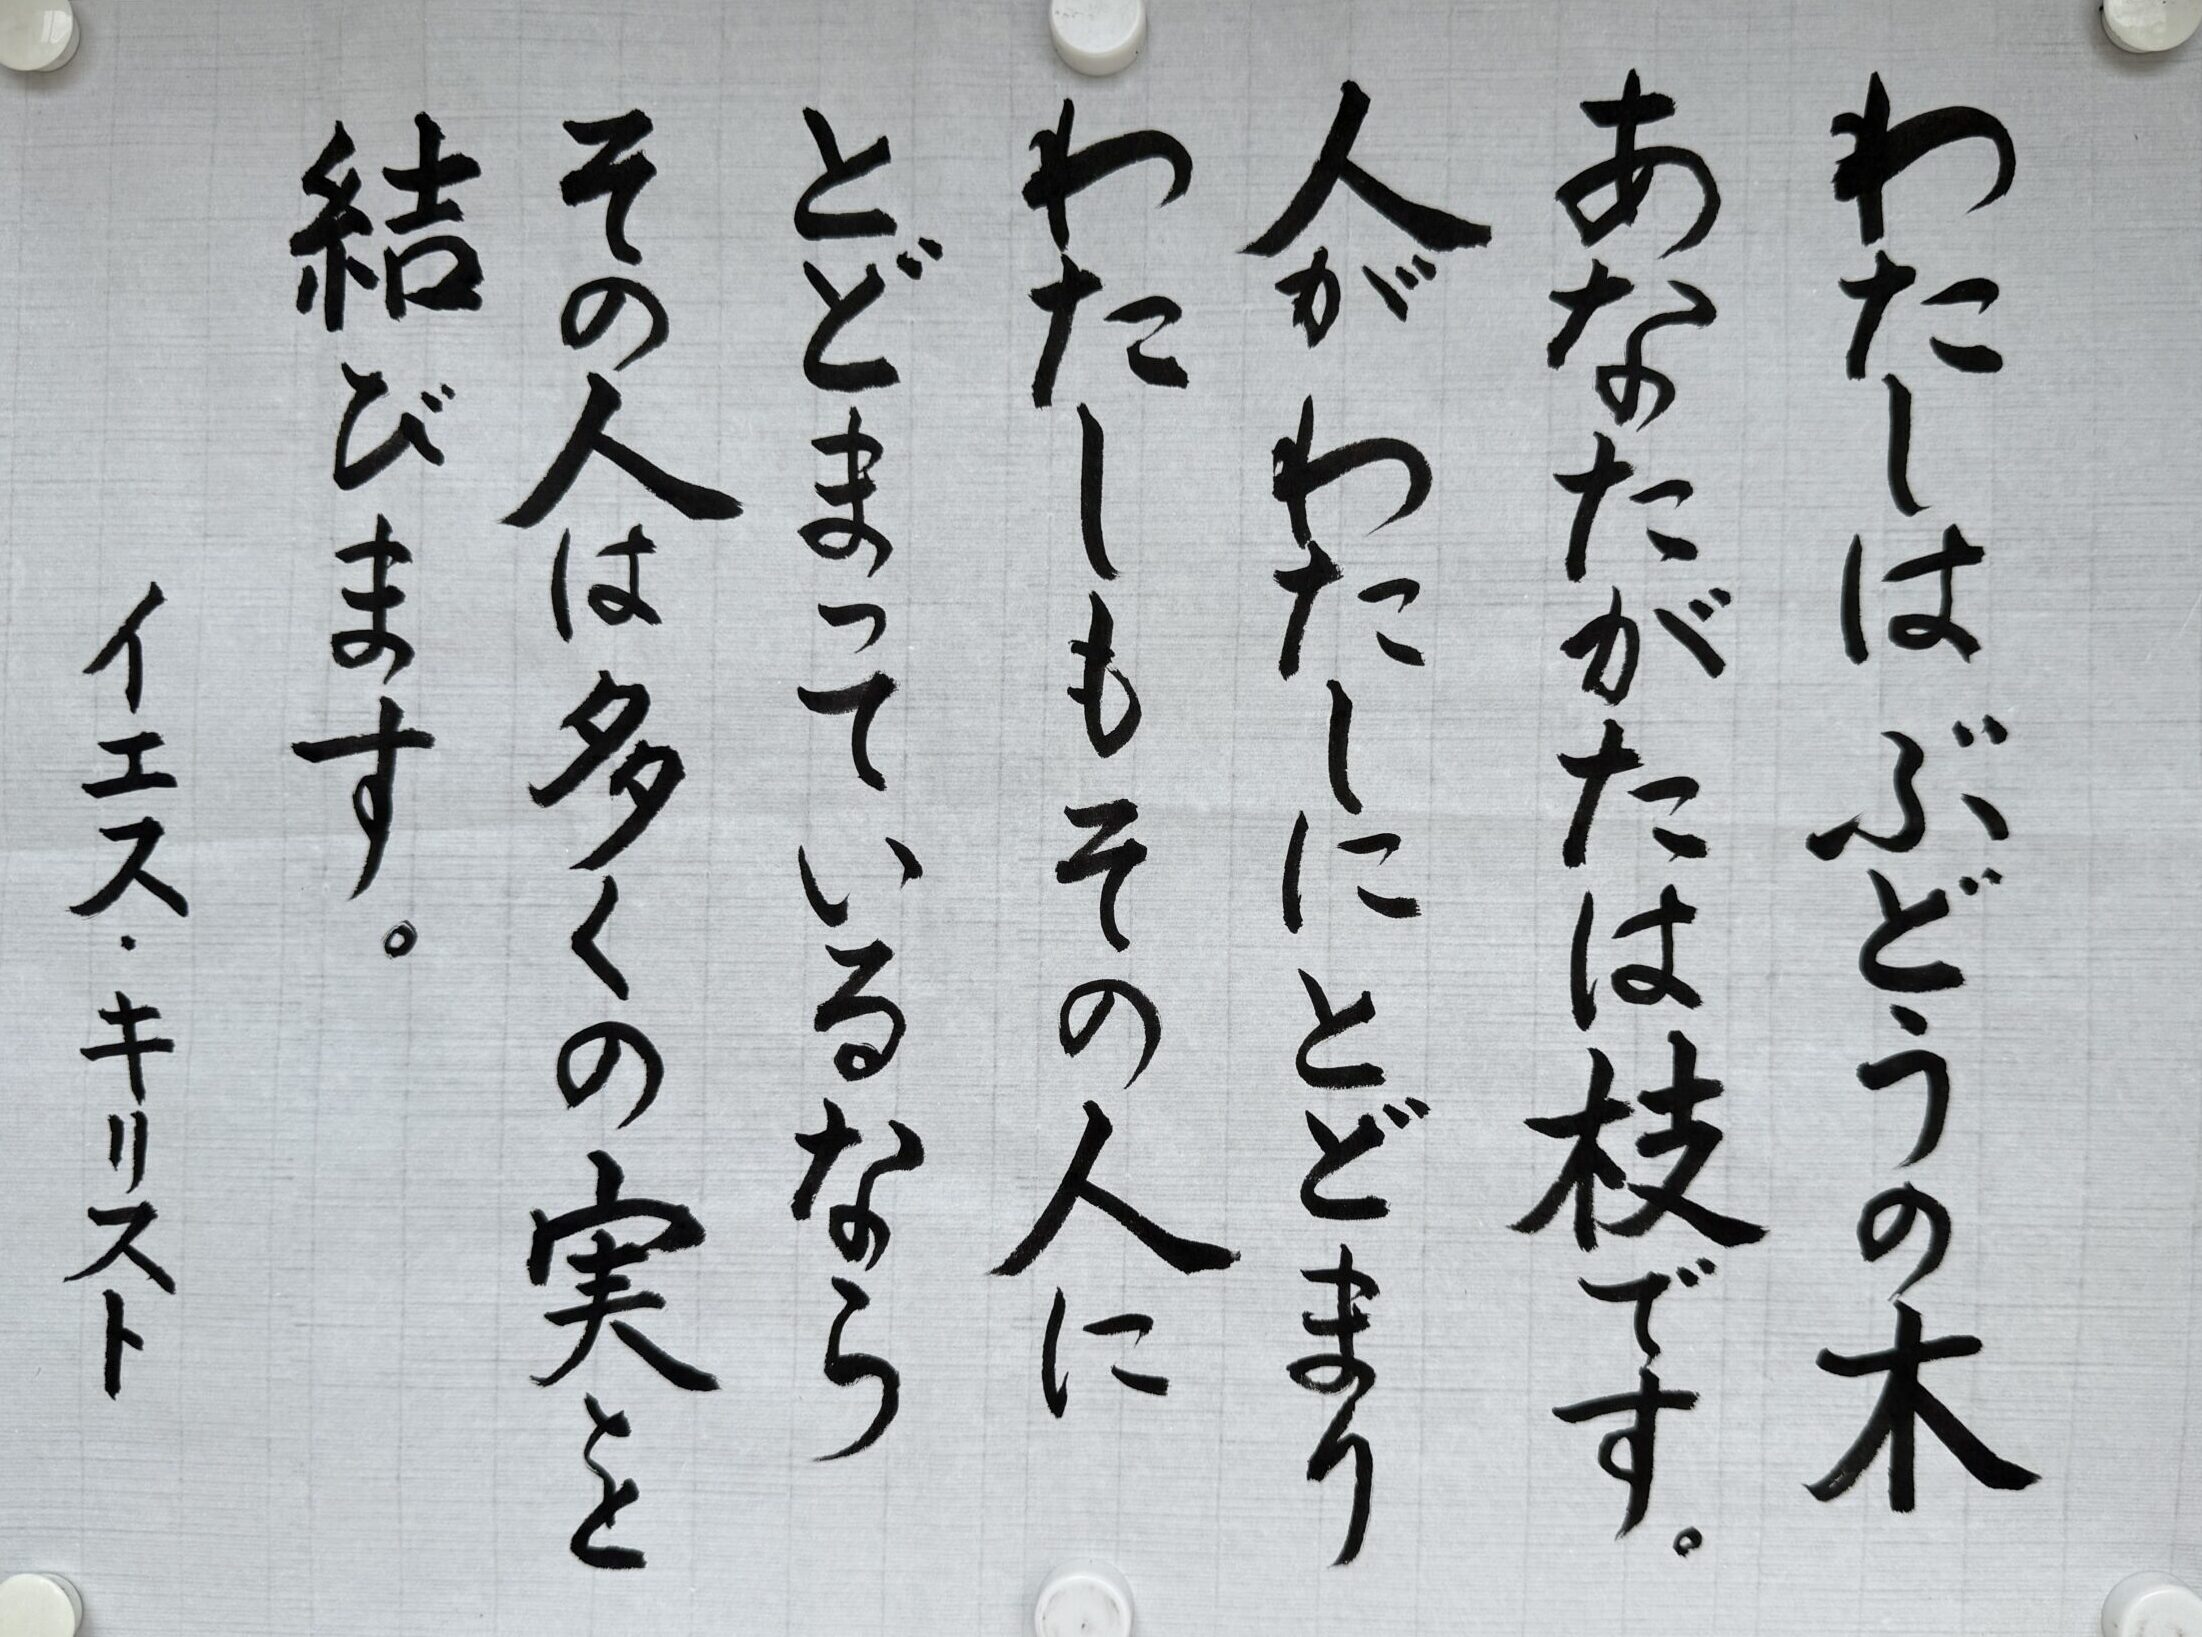 わたしはぶどうの木
あなたがたは枝です。
人がわたしにとどまり
わたしもその人に
とどまっているなら
その人は多くの実を
結びます。
イエス・キリスト